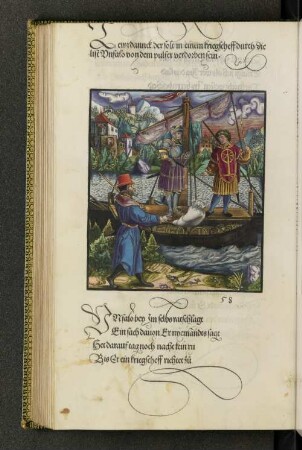 Teyrdanneck der solt in einem kriegscheff durch die
list Vnfalo von dem pulfer verdorben sein.
58
Vnfalo bey Im selbs ratschlagt
Ein sach dauon Er nyemandes sagt
Het darauf tag noch nacht kein ru
Bis Er ein kriegscheff richtet zu